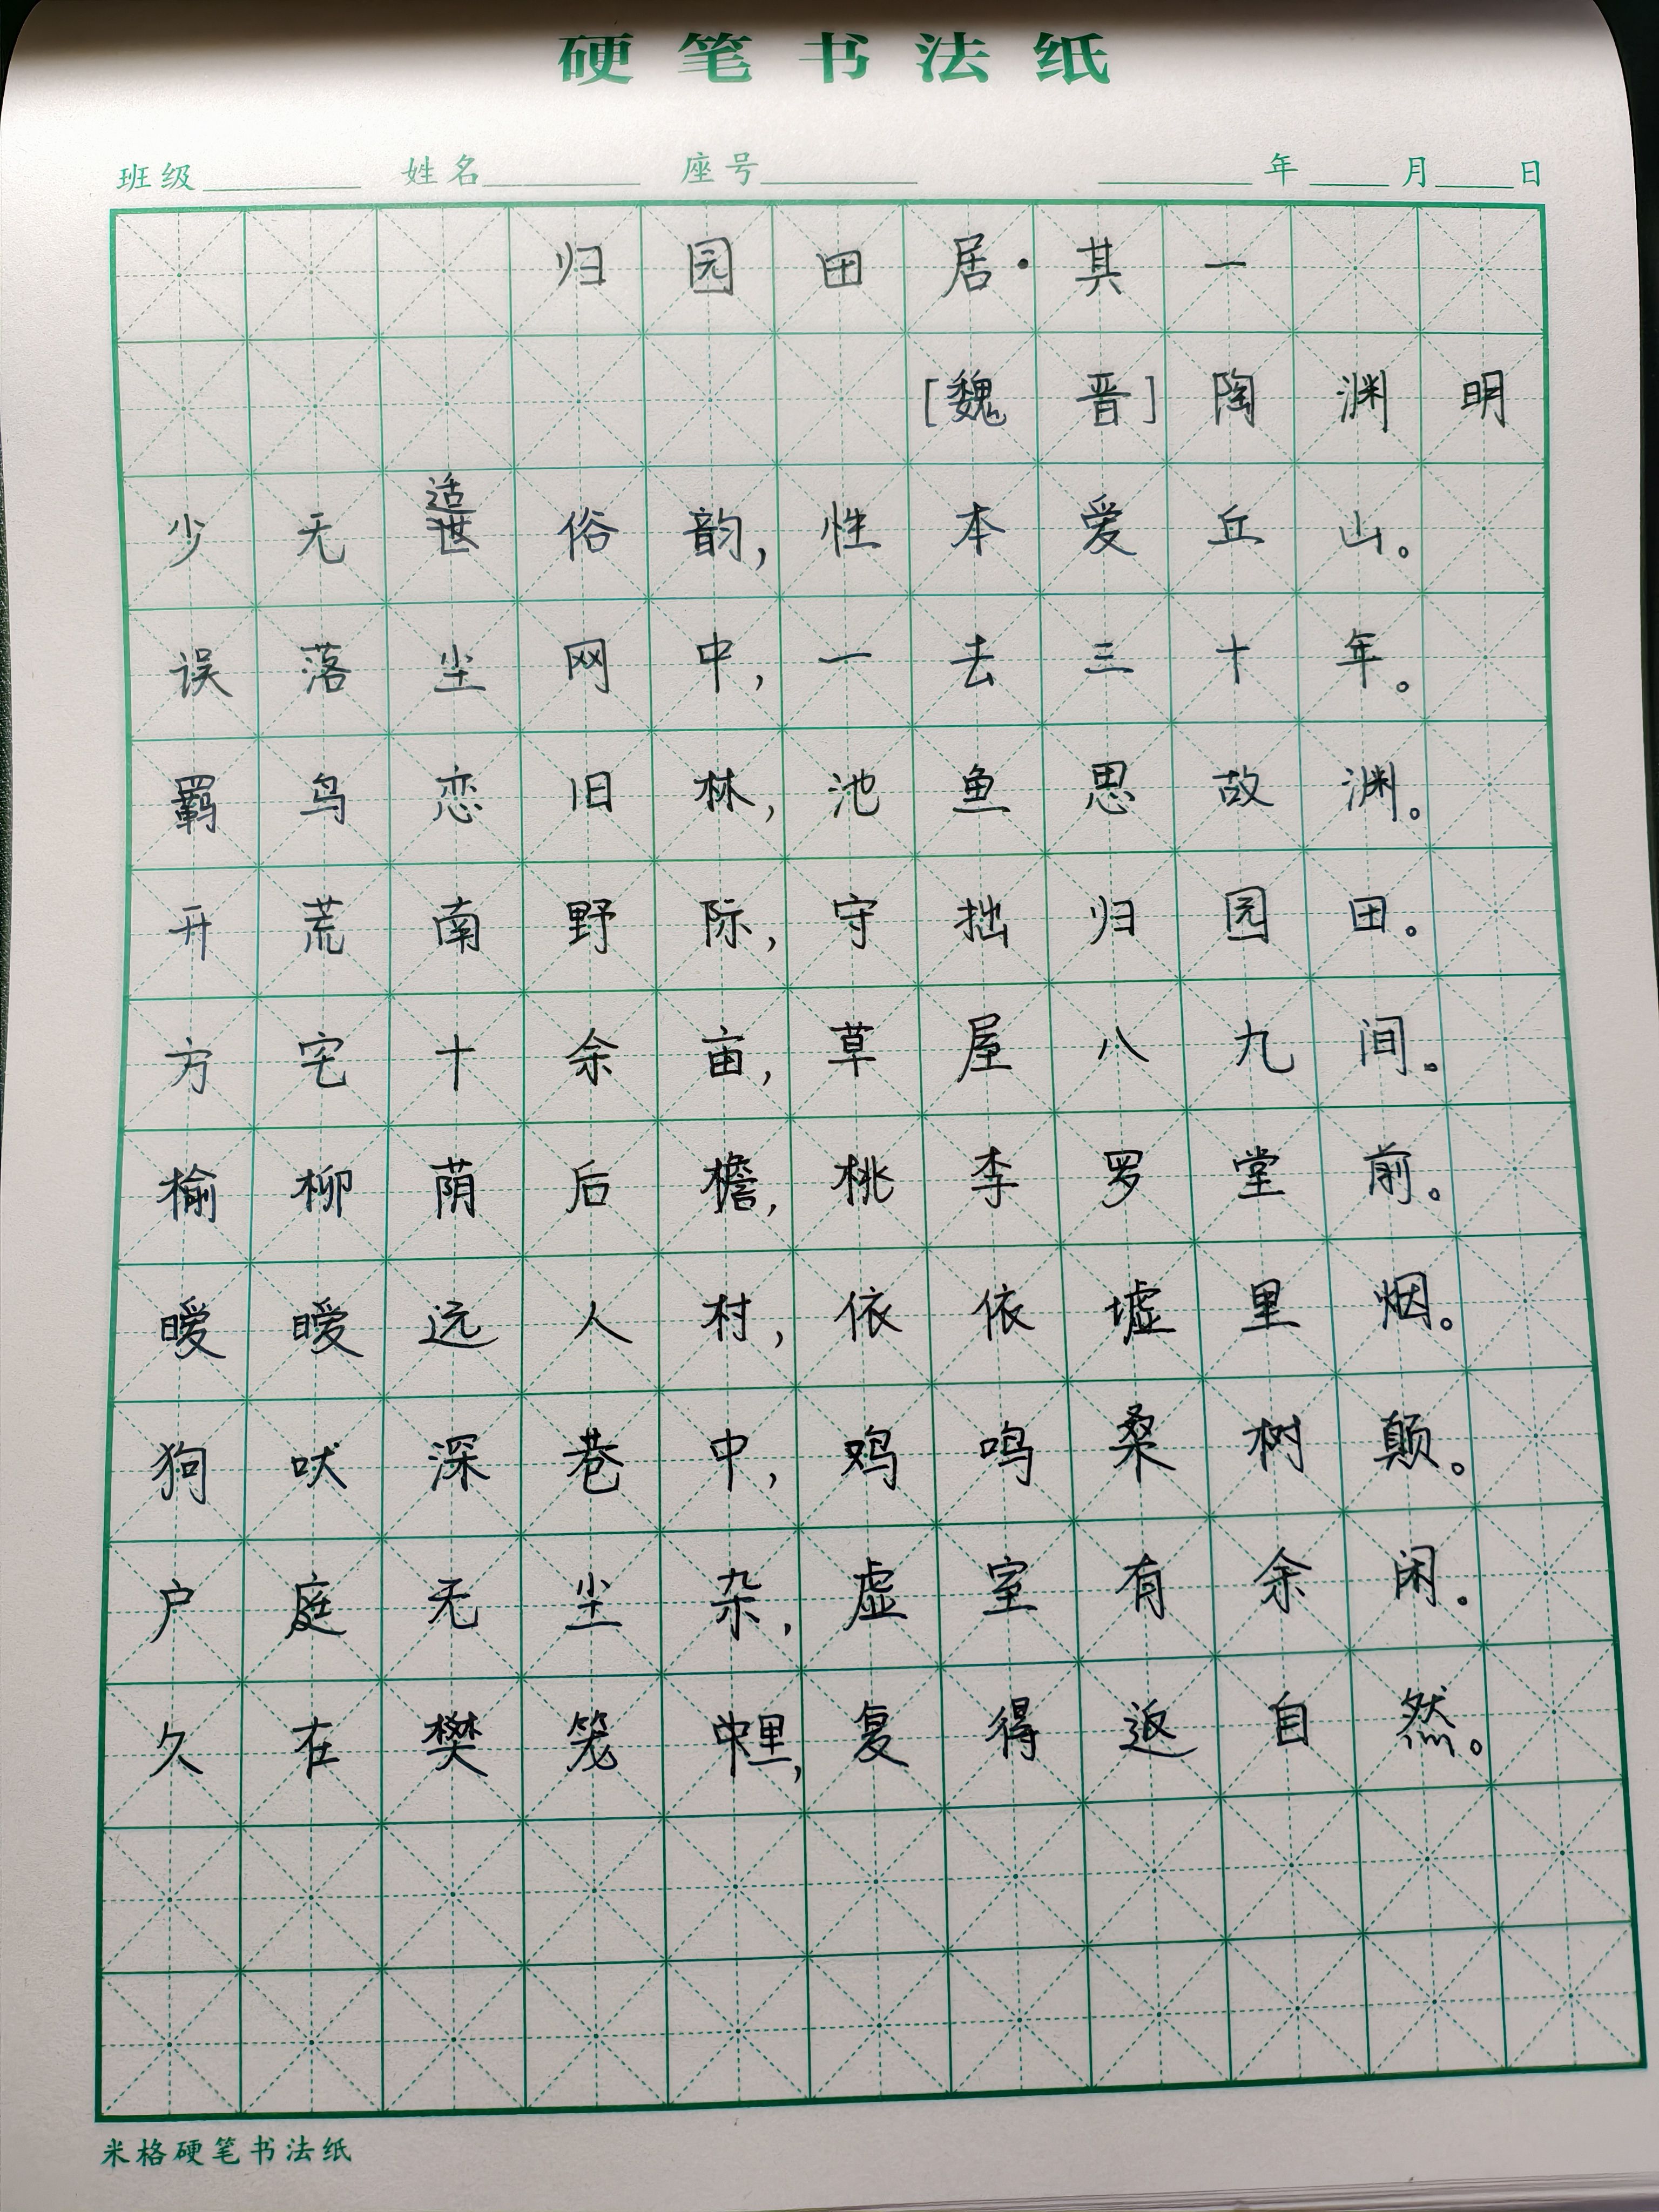 硬笔书法纸
班级 姓名 座号 年 月 日
归园田居·其一
[魏晋]陶渊明
少无适世俗韵，性本爱丘山。
误落尘网中，一去三十年。
羁鸟恋旧林，池鱼思故渊。
开荒南野际，守拙归园田。
方宅十余亩，草屋八九间。
榆柳荫后檐，桃李罗堂前。
暧暧远人村，依依墟里烟。
狗吠深巷中，鸡鸣桑树颠。
户庭无尘杂，虚室有余闲。
久在樊笼中里，复得返自然。
米格硬笔书法纸